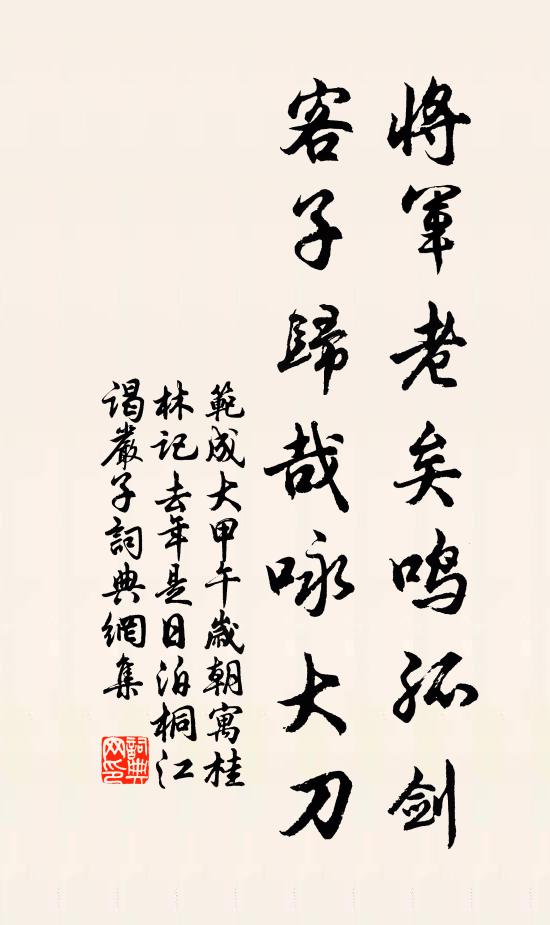 將軍老矣鳴孤劍
客子歸哉咏大刀
範成大甲午歲朝寓桂
林記去年是日泊桐江
謁嚴子詞典網集
詞典网印